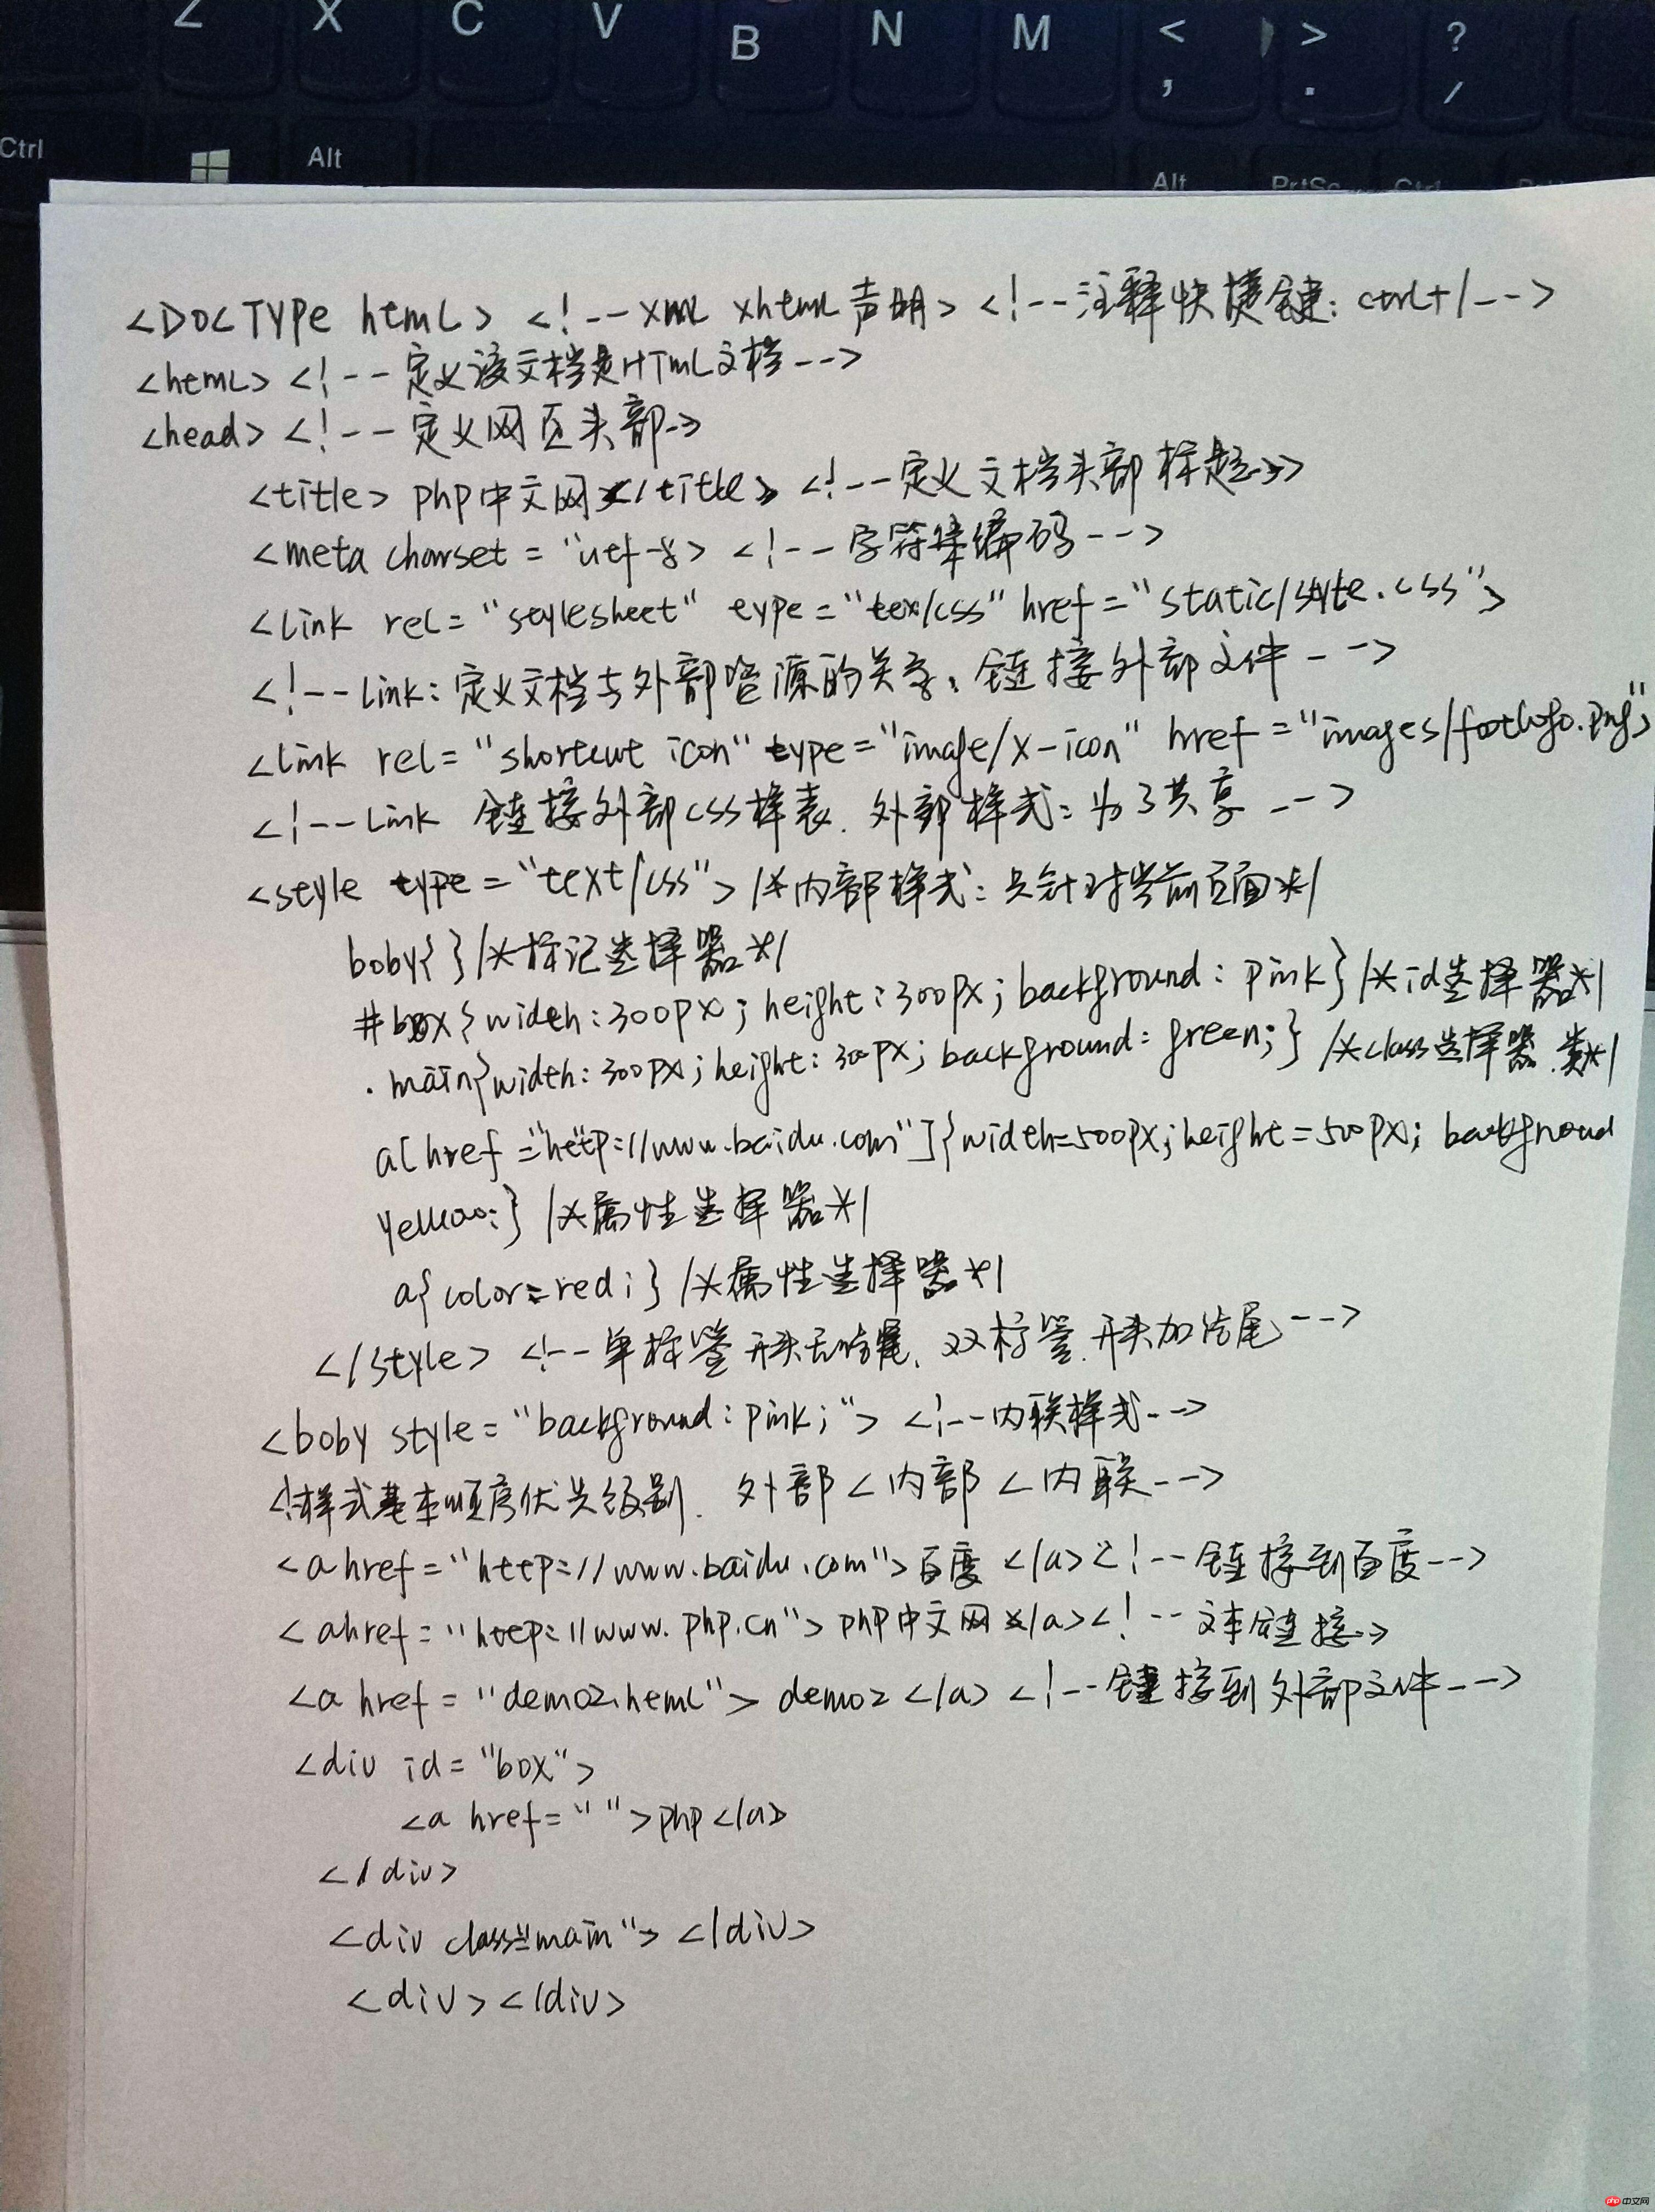 Z X C V B N M < , > . ? /
Ctrl Alt Alt PrtSc Ctrl
<DOCTYPe html> <!--xml xhtml声明> <!--注释快捷键: ctrl+/-->
<html> <!--定义该文档是HTmL文档-->
<head> <!--定义网页头部->
<title> php中文网</title> <!--定义文档头部标题-->
<meta charset = "utf-8> <!--字符集编码-->
<link rel="stylesheet" type="tex/css" href="static/style.css">
<!--link: 定义文档与外部资源的关系、链接外部文件-->
<link rel="shortcut icon" type="image/x-icon" href="images/footlogo.png">
<!--link 链接外部css样表. 外部样式: 为了共享-->
<style type="text/css"> /*内部样式: 只针对当前页面*/
boby{} /*标记选择器*/
#box{width:300px; height:300px; background: pink} /*id选择器*/
.main{width:300px; height:300px; background: green;} /*class选择器.类*/
a[href="http://www.baidu.com"]{width=500px; height=500px; backgroud
yellow;} /*属性选择器*/
a{color=red;} /*属性选择器*/
</style> <!--单标签 开头无结尾. 双标签. 开头加结尾-->
<boby style="background: pink;"> <!--内联样式-->
<!样式基本顺序优先级别. 外部<内部<内联-->
<a href="http://www.baidu.com">百度</a><!--链接到百度-->
<ahref="http://www.php.cn">php中文网</a><!--文本链接->
<a href="demo2.html"> demo2 </a> <!--链接到外部文件-->
<div id="box">
<a href=" ">php</a>
</div>
<div class="main"> </div>
<div></div>
php 中文网